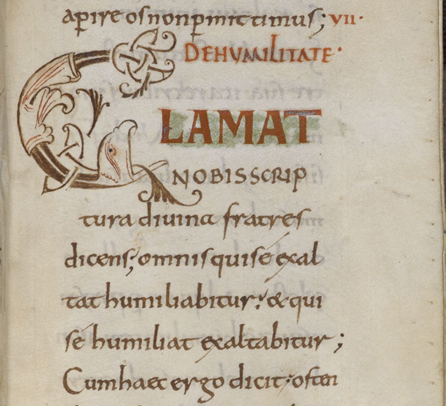 aperire os non permittimus; VII·
DE HUMILITATE·
CLAMAT
NOBIS SCRIP
tura divina fratres
dicens; omnis qui se exal
tat humiliabitur; & qui
se humiliat exaltabitur;
Cum haec ergo dicit; osten